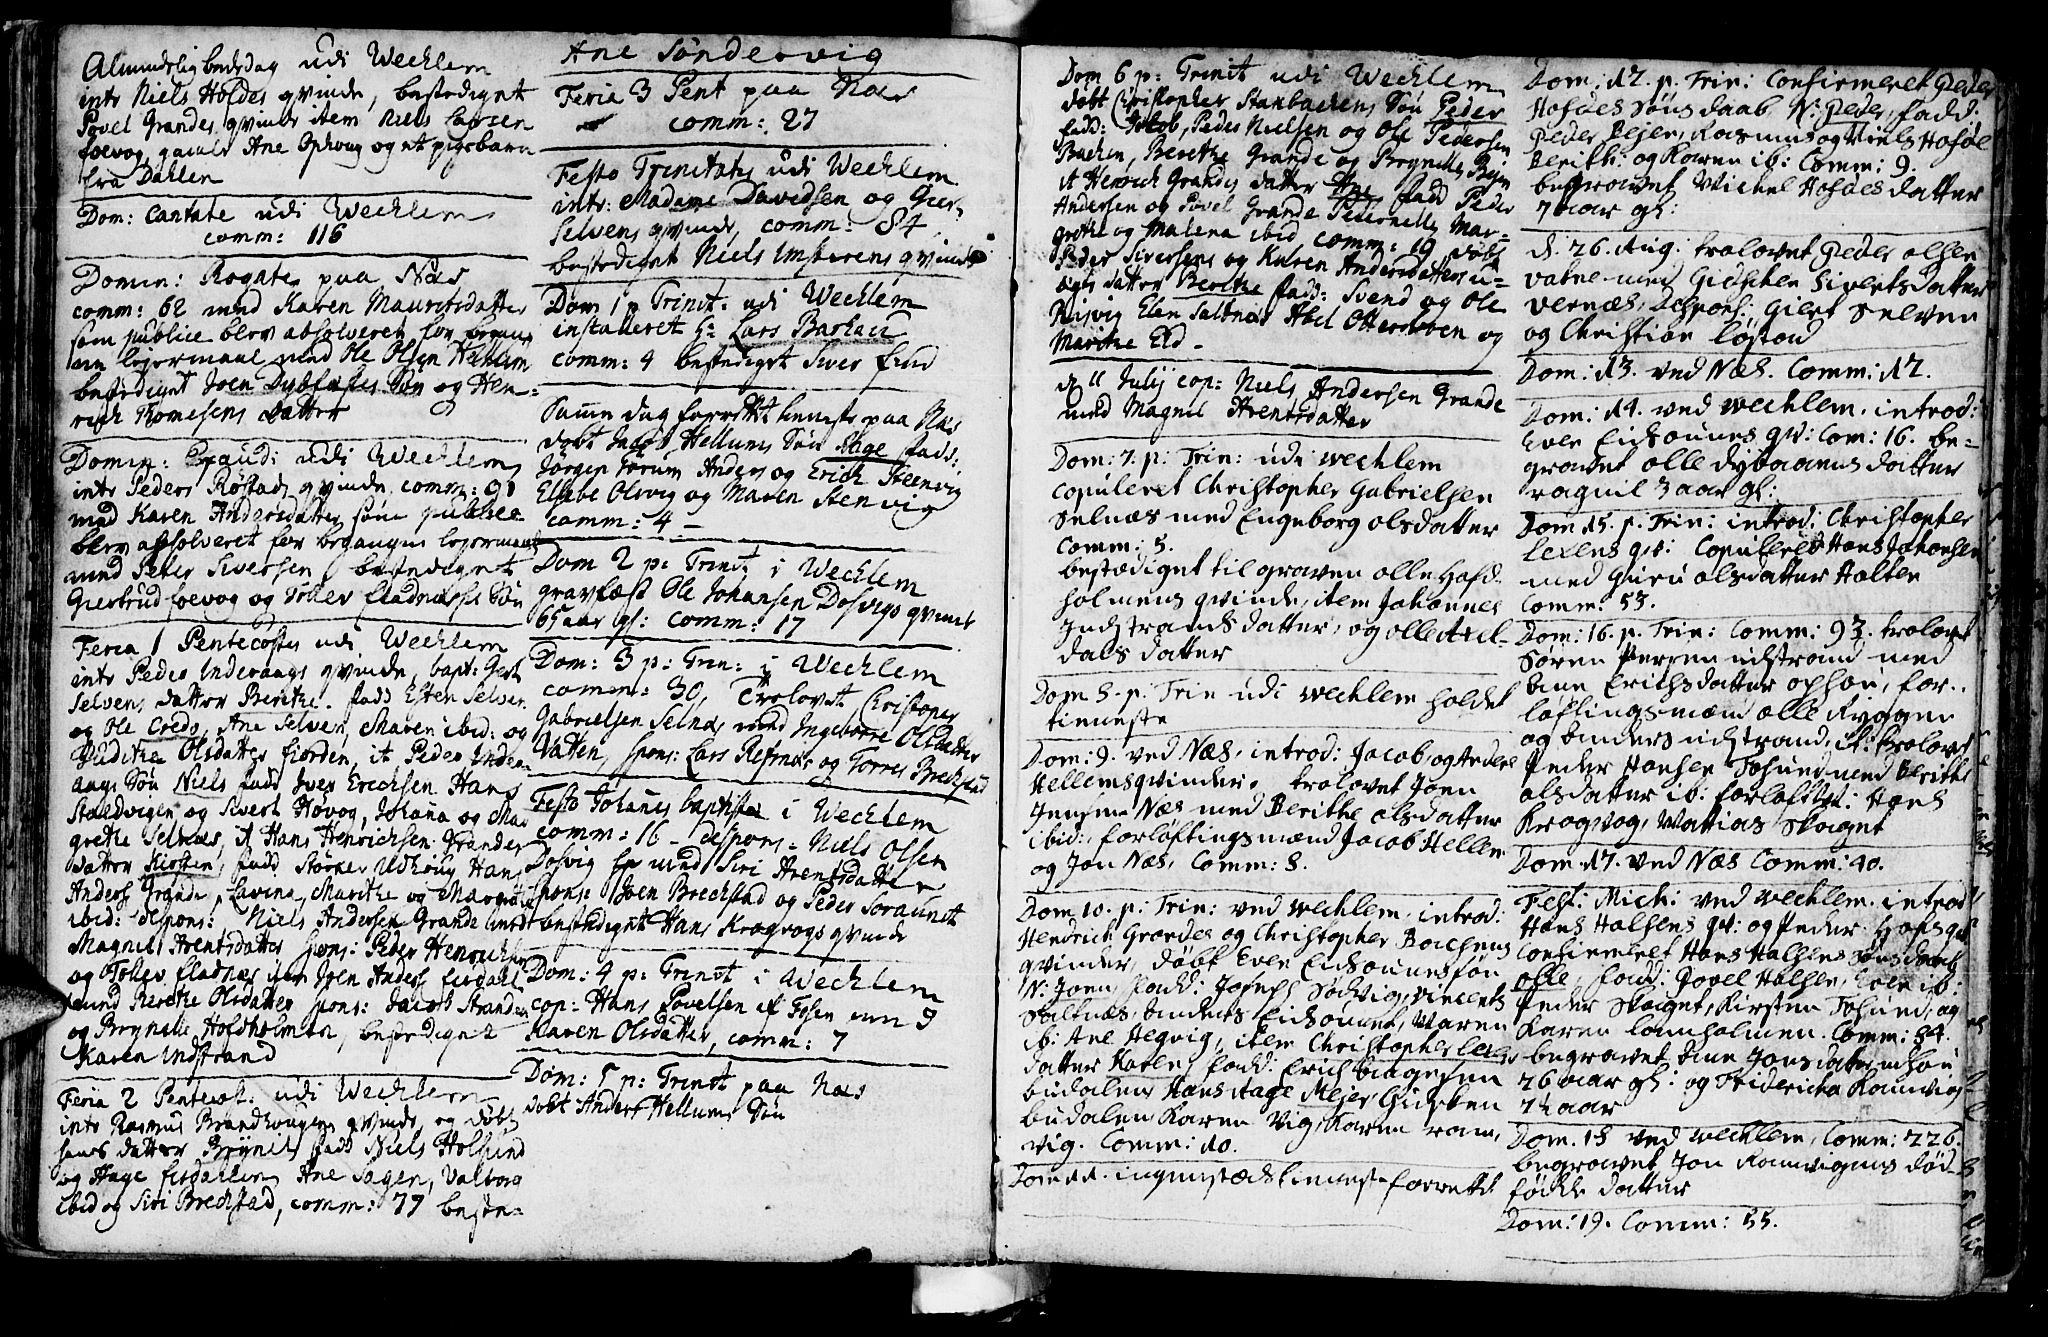 Almindelig bededag udi Wechlem
intr Niels Hofdes qvinde, bestedignt
Povel Grandes qvinde item Niels Larsen
foevog, gamle Ane Ophoug og et pigebarn
fra Dahlen
Dom: Cantate udi Wechlem
comm: 116
Domin: Rogate paa Näs
comm: 62 med Karen Mauritsdatter
som publice blev absolveret for
lejermaal med Ole Olsen
bestedignt Joen Dybfæstes Sön og Hen=
rich Thomesens datter
Domin: Exaudi udi Wechlem
intr Peder Röstads qvinde comm: 91
med Karen Andersdatter som publice
blev absolveret for begangen lejermaal
med Peter Sivertsen, bestedignt
Giertrud foevog og Tollev fladnæsses Sön
Feria 1 Pentecostes udi Wechlem
intr Peder Inderaags qvinde, bapt: Gert
Selvens datter Berethe. fadd Esten Selven
og Ole Creds, Ane Selven, Maren ibid: og
Judithe Olsdatter fiorden, it Peder Inder
aags Sön Niels fadd Iver Erichsen Hans
Staldvigen og Sivert Høvog, Johana og Mar
grethe Selnæs, it Hans Henrichsen Grandes
datter Kirsten, fadd Störker Udhoug Hans
Anders Grande, Lavina, Marithe og Margrethe
ibid: despons: Niels Andersen Grande med
Magnil Arentsdatter spons: Peder Henrichsen
og Tollev fladnæs item Joen Anders: ferdal
med Berethe Olsdatter spons: Jacob Strand
og Brynille Hofdholmen, bestedignet
Karen Indstrand
Feria 2 Pentecost: udi Wechlem
intr Rasmus Brandhougens qvinde og döbt
hans datter Brynil, fadd Niels Holsund
og Hage ferdalen Ane Sagen, Valborg
ibid og Siri Brechstad, comm: 77 beste=
Ane Sönderviig
Feria 3 Pent paa Näs
comm: 27
Festo Trinitatis udi Wechlem
intr: Madame Davidsen og Giert
Selvens qvinde, comm: 84
bestedignt Niels Imsterens qvinde
Dom 1 p Trinit: udi Wechlem
installeret h: Lars Barhau
comm: 4 bestedignt Siver fend
Samme dag forrettet tieneste paa Näs
döbt Jacob Hellums Sön Hage fadd:
Jörgen Forum Anders og Erich Steenvig
Elsebe Olsvig og Maren Stenvig
comm: 4 —
Dom 2 p: Trinit i Wechlem
gravfæst Ole Johansen Dosvigs qvinde
65 aar gl: comm: 17
Dom: 3 p: Trin: i Wechlem
comm: 30, Trolovet Christoper
Gabrielsen Selnæs med Ingeborre Olsdatter
Vatten, spons: Lars Refsnæs og Torres Brechstad
Festo Johanis baptistæ i Wechlem
comm: 16 — despons: Niels Olsen
Dosvig med Siri Arentsdatter
spons: Joen Brechstad og Peder Soraunet
bestedignt Hans Kragvogs qvinde
Dom: 4 p: Trinit i Wechlem
cop: Hans Povelsen Fosen med
Karen Olsdatter, comm: 7
Dom: 5 p: Trinit paa Näs
dobt Anders Hellums Sön
Dom 6 p: Trinit udi Wechlem
döbt Christopher Stanbachens Sön Peder
fadd: Jakob, Peder Nielsen og Ole Pedersen
Bachen, Berethe Grande og Brynille
it Henrich Grandes datter Ane fadd Peder
Andersen og Povel Grande Pedernille Mar=
grethe og Malena ibid, comm: 19 döbt
Peder Siversens og Karen Andersdatters u=
ægte datter Berethe fadd: Svend og Ole
Risvig Elen Saltnæs Abel Ottersboen og
Marithe Eld —
d 11 Julij cop: Niels Andersen Grande
med Magnil Arentsdatter
Dom: 7. p: Trin: udi Wechlem
Copuleret Christopher Gabrielsen
Selnæs med Engeborg olsdatter
Comm: 5.
bestediget til graven olle Hofd.
holmens qvinde, item Johannes
Indstrands datter, og olle Arel-
dals datter
Dom 8. p: Trin udi Wechlem holdet
tieneste
Dom: 9. ved Næs, introd: Jacob og Anders
Hellems qvinder. trolovet Joen
Jensen Næs med Berithe olsdatter
ibid: forløftingsmænd Jacob Hellem
og Jon Næs, Comm: 8.
Dom 10. p: Trin: ved Wechlem, introd:
Hendrich Grandes og Christopher Bachens
qvinder, döbt Even Eidsounes søn
N: Joen fadd: Joseph Sørvig, Vincents
Saltnæs, Anders Eidsounet, Maren
ib: Ane Hegvig, item Christopher Lexes
datter Karen, fadd: Erich
budalen Hans Hage Mejer Gidsken
budalen Karen Vig, Karen ram,
vig. Comm: 10.
Dom 11. ingenstæds tieneste forrettet
Dom: 12. p. Trin: Confirmeret Peder
Hofdes Söns daab, N: Peder, fadd:
Peder Bejer, Rasmus og Niels Hofde
Berith: og Karen ib: Comm: 9.
begravet Michel Hofdes datter
7 aar gl:
d. 26. Aug: trolovet Peder olsen
Vatne med Gidschen Sivertsdatter
vernæs, Despons: Giert Selven
og Christian løstad
Dom: 13. ved Næs. Comm: 12.
Dom: 14. ved Wechlem. introd:
Even Eidsounes qv: Com: 16. be=
gravet olle dybaaens datter
ragnil 3 aar gl:
Dom 15. p: Trin: introd: Christopher
lexens qv: Copuleret Hans Johansen
med Guru olsdatter Halten
Comm: 53.
Dom: 16. p. Trin: Comm: 93. trolovet
Sören Persen udstrand med
Ane Erichsdatter ophou, for..
løftingsmænd olle Rygger
og Anders udstrand, it: trolovet
Peder Hansen Fosund med Berithe
olsdatter ib: forløfftet: Hans
Kragvog, Mattias Skaget
Dom. 17. ved Næs Comm: 40.
Fest: Mich: ved Wechlem. introd
Hans Halsens qv: og Peder Hofs qv:
Confirmeret Hans Halsens Söns daab
olle, fadd: Povel Halsen, Even ib:
Peder Skaget, Kirsten Fosund, og
Karen lamholmen. Comm: 84.
begravet Ane Jonsdatter udhou
76 aar gl: og Friderica Ramvig
7½ aar
Dom. 18 ved Wechlem, Comm: 226.
begravet Jon Ramvigens død-
fødde datter
Dom: 19. Comm: 55.